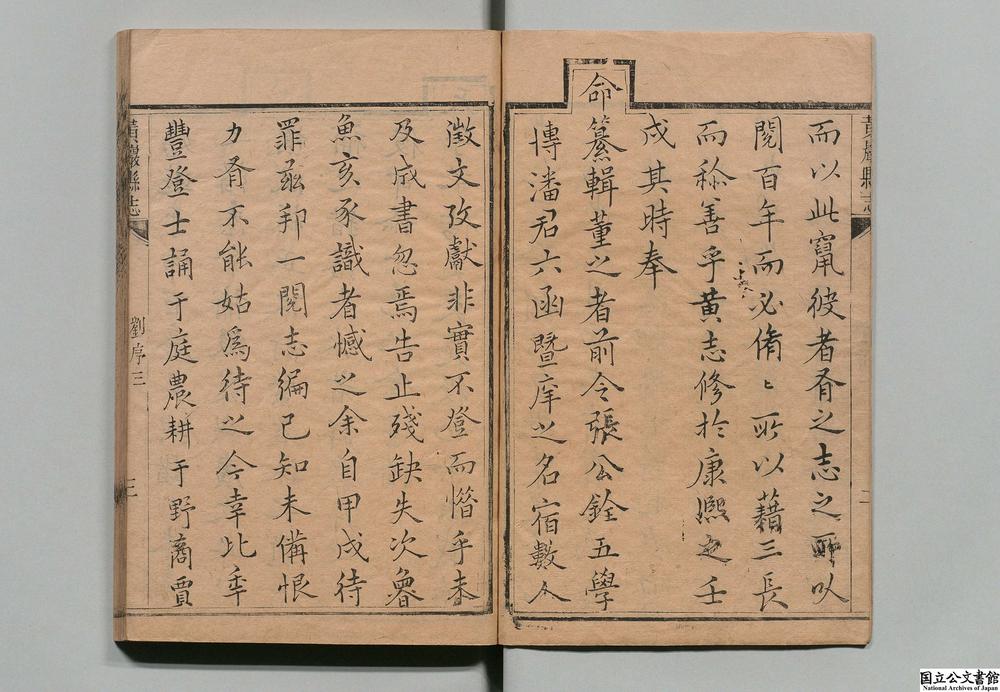 黃巖縣志
二
而以此竄彼者胥之志之所以
閱百年而必脩〻所以藉三長
而稱善乎黃志修於康熙之壬
戌其時奉
命
纂輯董之者前令張公銓五學
博潘君六函暨庠之名宿數人
徵文攷獻非實不登而惜乎未
及成書忽焉告止殘缺失次魯
魚亥豕識者憾之余自甲戌待
罪茲邦一閱志編已知未備恨
力有不能姑為待之今幸比年
豐登士誦于庭農耕于野商賈
黃巖縣志
劉序三
三
国立公文書館
National Archives of Japan